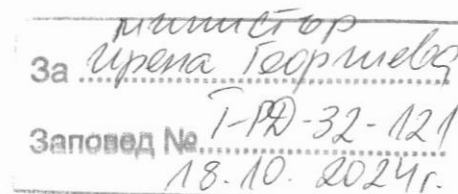 министър
За Ирена Георгиева
Заповед № Т-РД-32-121
18.10. 2024г.